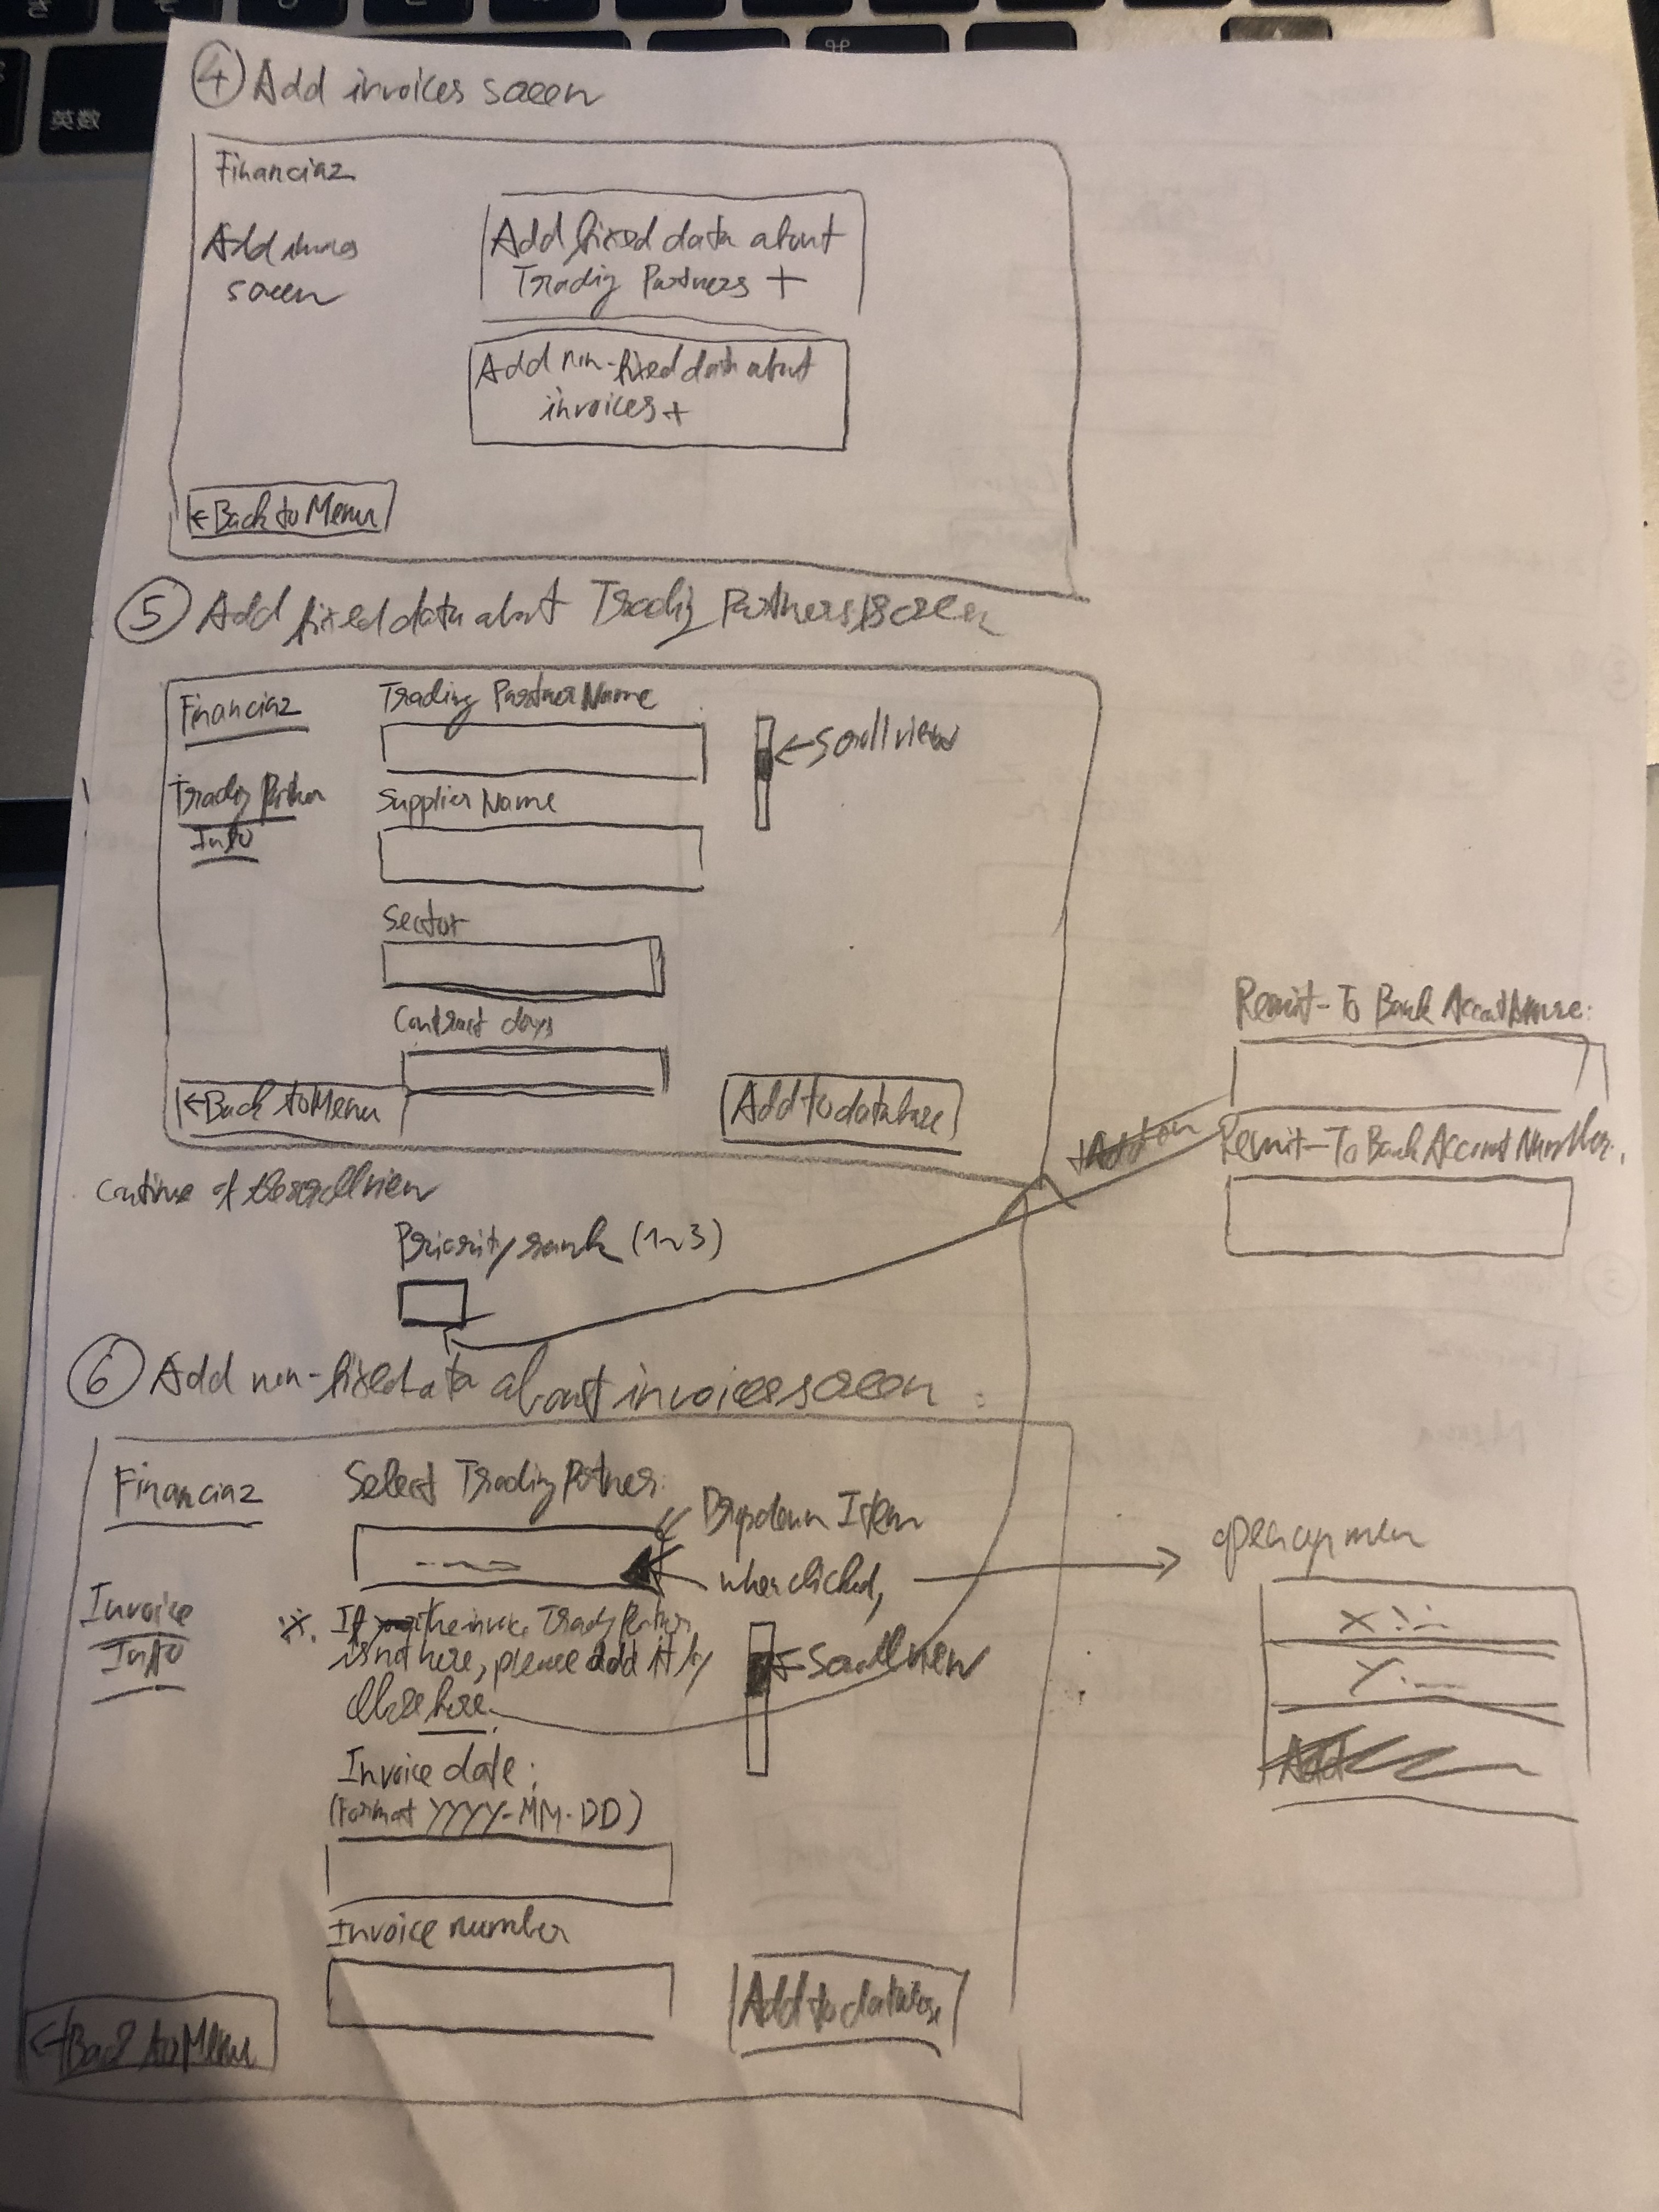 英数
⌘
④ Add invoices screen
Financiaz
Add invoices
screen
Add fixed data about
Trading Partners +
Add non-fixed data about
invoices +
← Back to Menu
⑤ Add fixed data about Trading Partners screen
Financiaz
Trading Partner
Info
Trading Partner Name
← Scroll view
Supplier Name
Sector
Contract days
← Back to Menu
Add to database
Continue of the scroll view
Priority rank (1~3)
Remit-To Bank Account Name:
Remit-To Bank Account Number:
⑥ Add non-fixed data about invoices screen:
Financiaz
Invoice
Info
Select Trading Partner:
Dropdown Item
when clicked,
open up menu
X
Y
Add
※. If the invoice Trading Partner
is not here, please add it by
here.
← Scroll view
Invoice date:
(Format YYYY-MM-DD)
Invoice number
← Back to Menu
Add to database